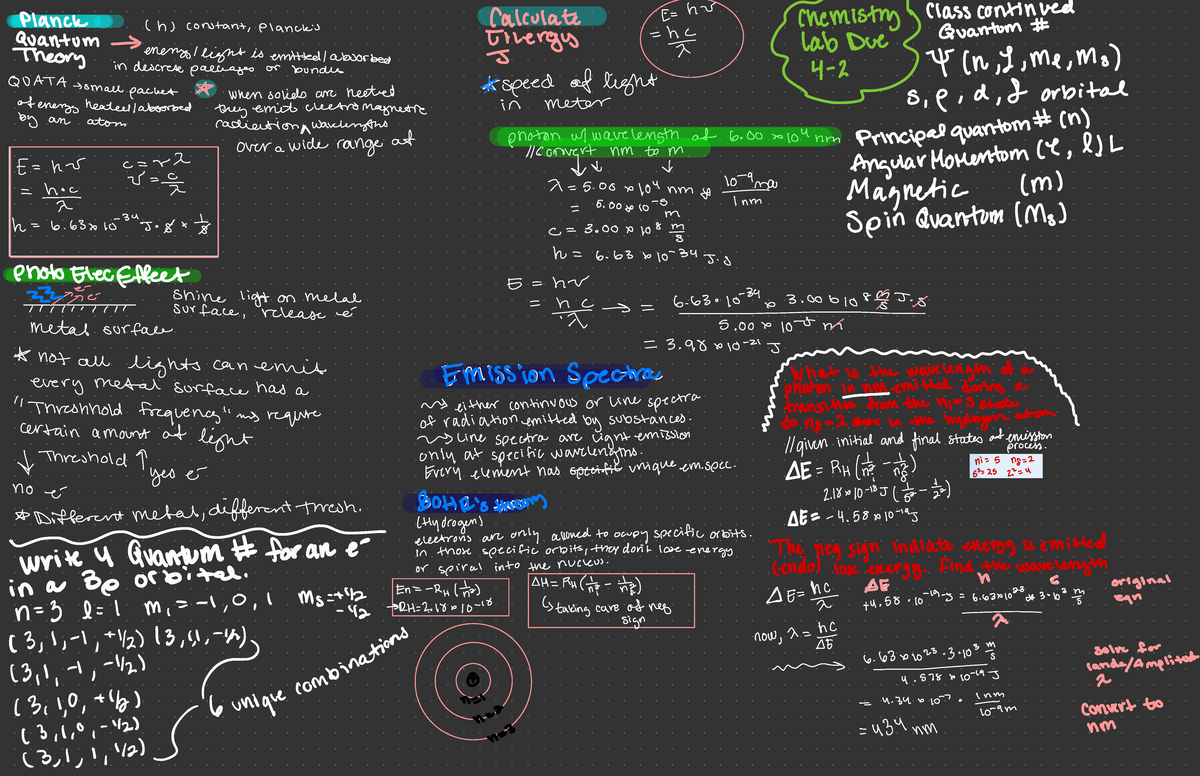 Planck
Quantum
Theory
(h) constant, Planck's
→ energy/light is emitted/absorbed
in descrete packages or bundles
QUATA → small packet
of energy heated/absorbed
by an atom
When solids are heated
they emist electromagnetic
radiation, wavelengths
over a wide range of
E = hν
= h·c / λ
c = νλ
ν = c / λ
h = 6.63 x 10^-34 J·s x 1/s
Photo Elec Effect
e-
e-
Shine light on metal
surface, release e-
metal surface
* not all lights can emit
every metal surface has a
"Threshhold frequency" require
certain amount of light
↓ Threshold ↑
no e-
yes e-
* Different metal, different thresh.
Write 4 Quantum # for an e-
in a 3p orbital.
n=3 l=1 m1=-1,0,1 ms=+1/2
-1/2
(3,1,-1,+1/2) (3,1,1,-1/2)
(3,1,-1,-1/2)
(3,1,0,+1/2)
(3,1,0,-1/2)
(3,1,1,1/2)
6 unique combinations
Calculate
Energy
J
E = hν
= hc / λ
* speed of light
in meter
photon w/ wavelength of 6.00 x 10^4 nm
// Convert nm to m
λ = 5.00 x 10^4 nm x 10^-9 m / 1 nm
= 5.00 x 10^-5 m
c = 3.00 x 10^8 m/s
h = 6.63 x 10^-34 J·s
E = hν
= hc / λ → = 6.63·10^-34 x 3.00 x 10^8 m/s J·s
5.00 x 10^-5 m
= 3.98 x 10^-21 J
Emission Spectra
either continuous or line spectra
of radiation emitted by substances.
line spectra are light emission
only at specific wavelengths.
Every element has specific unique em.spec.
BOHR's theory
(Hydrogen)
electrons are only allowed to occupy specific orbits.
In those specific orbits, they don't lose energy
or spiral into the nucleus.
En = -RH (1/n²)
→ RH = 2.18 x 10^-18
ΔH = RH (1/ni² - 1/nf²)
taking care of neg
sign
n=1
n=2
n=3
Chemistry
Lab Due
4-2
Class continued
Quantum #
Ψ (n, l, ml, ms)
s, p, d, f orbital
Principal quantom # (n)
Angular Momentom (l, l) L
Magnetic (m)
Spin Quantom (Ms)
What is the wavelength of a
photon in nm emitted during a
transition from the ni=3 state
to nf=2 state in the hydogen atom
// given initial and final states of emission
process.
ΔE = RH (1/ni² - 1/nf²)
ni = 5 nf = 2
5²= 25 2² = 4
2.18 x 10^-18 J (1/5² - 1/2²)
ΔE = -4.58 x 10^-19 J
The neg sign indiate energy is emitted
(endo) lose energy. Find the wavelength
ΔE = hc / λ
ΔE h c
+4.58 · 10^-19 J = 6.63x10^23 x 3·10^8 m/s
λ
original
eqn
now, λ = hc / ΔE
6.63 x 10^23 · 3·10^8 m/s
4.578 x 10^-19 J
solve for
lamda/Amplitude
λ
= 4.34 x 10^-7 · 1 nm / 10^-9 m
= 434 nm
Convert to
nm